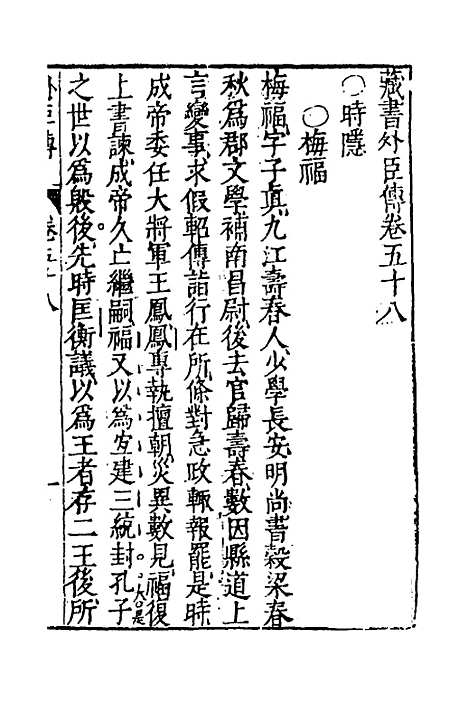 藏書外臣傳卷五十八
○時隱
○梅福
梅福字子眞九江壽春人少學長安明尚書穀梁春
秋爲郡文學補南昌尉後去官歸壽春數因縣道上
言變事求假軺傳詣行在所條對急政輙報罷是時
成帝委任大將軍王鳳鳳專執擅朝災異數見福復
上書諫成帝久亡繼嗣福又以爲宜建三統封孔子
大是
之世以爲殷後先時匡衡議以爲王者存二王後所